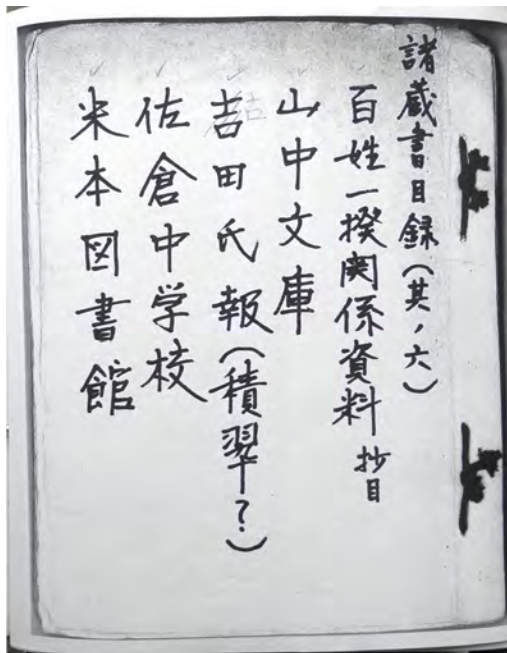 諸蔵書目録(其ノ六)
百姓一揆関係資料 抄目
山中文庫
吉田氏報(積翠?)
佐倉中学校
米本図書館